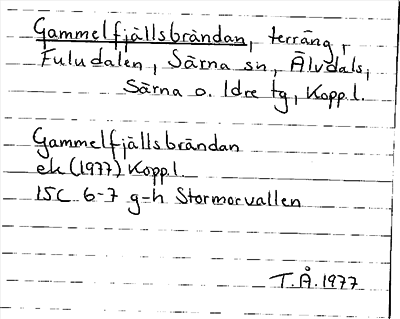 Gammelfjällsbrändan, terräng,
Fuludalen, Särna sn, Älvdals,
Särna o. Idre tg, Kopp.l.
Gammelfjällsbrändan
ek (1977) Kopp.l.
15C 6-7 g-h Stormorvallen
T.Å. 1977